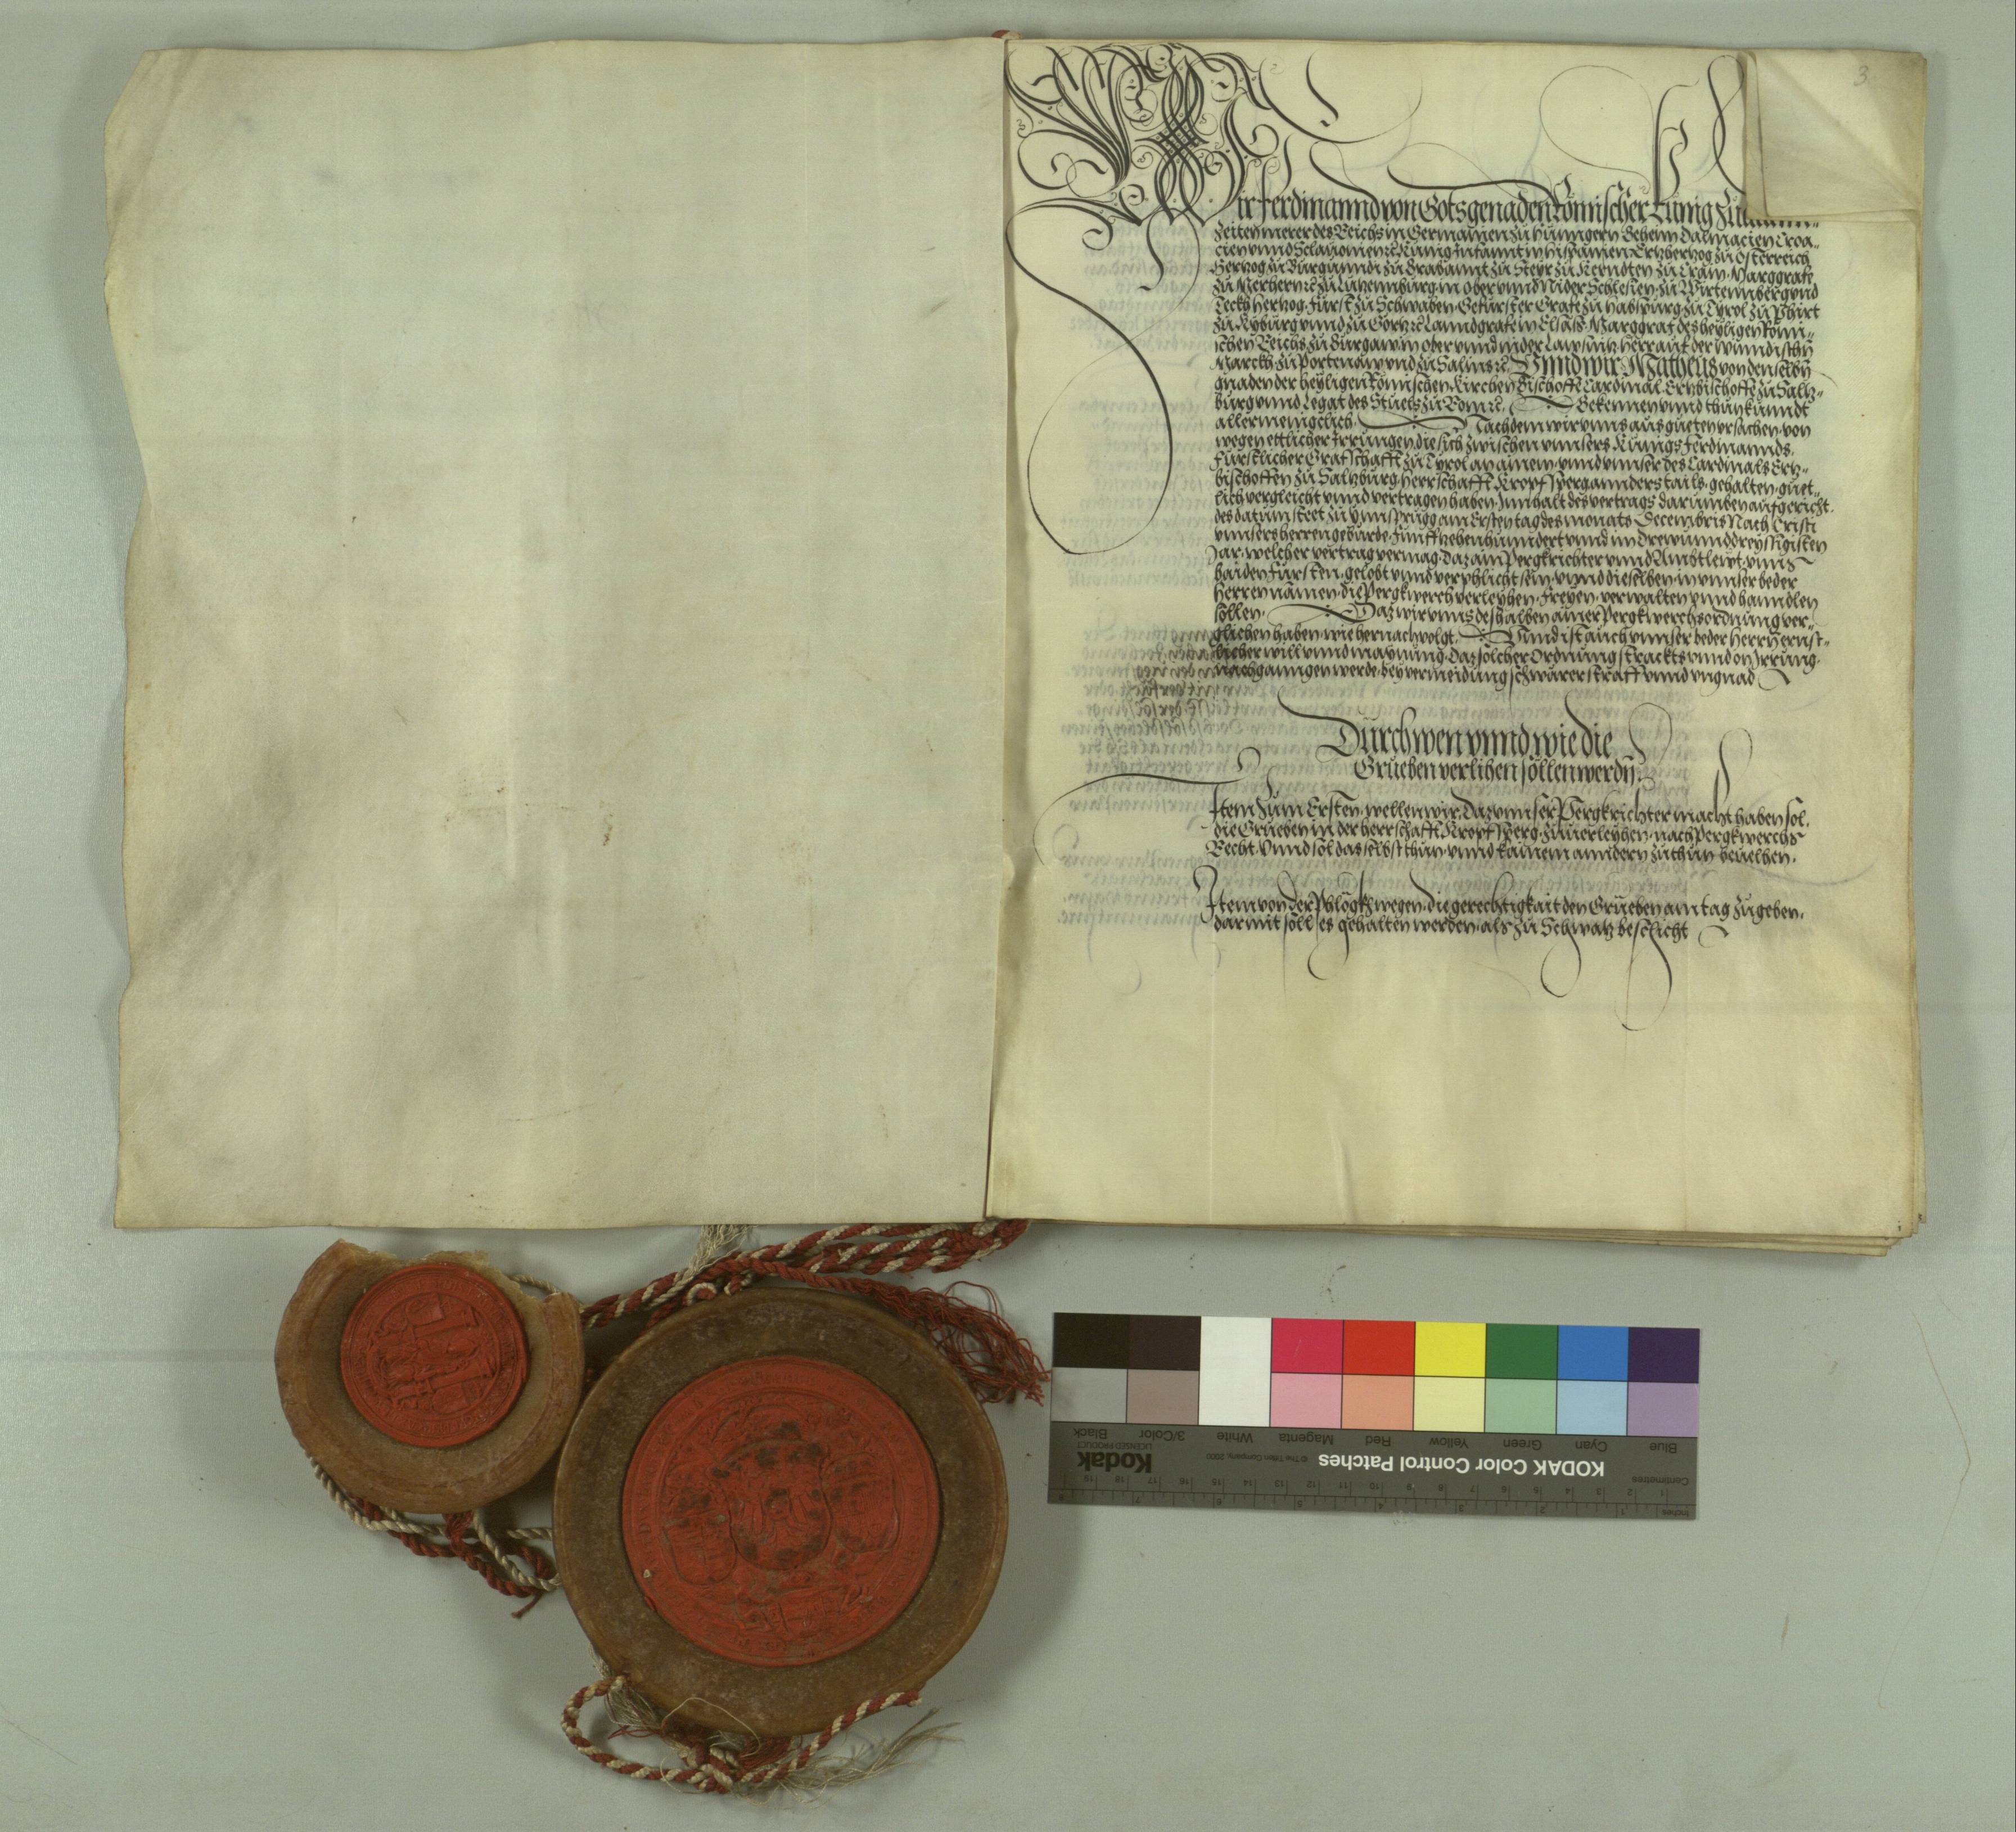 3
Wir Ferdinannd von Gots genaden Römischer Kunig zu
zeiten merer des Reichs in Germanien zu Hunngern Behem Dalmacien Croa„
cien vnnd Sclauonien ꝛc Kunig Infannt in Hispanien Ertzhertzog zu Österreich
Hertzog zu Burgunndi zu Brabannt zu Steyr zu Kerndten zu Crain Marggrafe
zu Merhern ꝛc zu Lutzemburg in ober vnnd Nider Schlesien zu Wirtemberg vnd
Teckh Hertzog Fürst zu Schwaben Gefürster Grafe zu Habspurg zu Tyrol zu Phirt
zu Kyburg vnnd zu Görtz ꝛc Lanndgrafe in Elsäss Marggraf des heyligen Römi„
schen Reichs zu Burgaw in ober vnnd nider Lawsnitz Herr auf der Wiindischn
Marckh zu Portenaw vnd zu Salins ꝛc Vnnd wir Matheus von denselbn
gnaden der heyligen Römischen Kirchen Bischoffe Cardinal Ertzbischoffe zu Saltz„
burg vnnd Legat des Stuels zu Rom ꝛc Bekennen vnnd thun kunndt
allermenigclich Nachdem wir vnns aus gueten vrsachen von
wegen ettlicher Irrungen die sich zwischen vnnsers Kunigs Ferdinannds
Fürstlicher Grafschafft zu Tyrol an ainem vnnd vnnser des Cardinals Ertz„
bischoffen zu Saltzburg Herrschafft Kropfsperg annders tails gehalten guet„
lich vergleicht vnnd vertragen haben Innhalt des vertrags darumben aufgericht
des datum steet zu Ynnsprugg am Ersten tag des monats Decembris Nach Cristi
vnnsers herren geburde fünffzehenhunndert vnnd im drewunnddreyssigisten
Jar welcher vertrag vermag daz ain Pergkrichter vnnd Ambtlewt vnns
baiden Fürsten gelobt vnnd verphlicht sein vnnd dieselben in vnnser beder
herren namen die Pergkwerch verleyhen freyen verwalten vnnd hanndlen
sollen Daz wir vnns deshalben ainer Pergkwerchsordnung ver„
glichen haben wie hernach volgt Vnnd ist auch vnnser beder Herrn ernst„
licher will vnnd maynung daz solcher Ordnung strackts vnnd on Irrung
nachganngen werde bey vermeidung schwärer straff vnnd vngnad
Durch wen vnnd wie die
Grueben verlihen söllen werdn
Item zum Ersten wellen wir daz vnnser Pergkrichter macht haben sol
die Grueben in der herrschafft Kropfsperg zuuerleyhen nach Pergkwerchs
Recht Vnnd sol das selbst thun vnnd kainem anndern zuthun beuelhen
Item von der Phlögkh wegen die gerechtigkait den Grueben am tag zugeben
darmit soll es gehalten werden als zu Schwatz beschicht
KODAK Color Control Patches
Kodak
LICENSED PRODUCT
© The Tiffen Company, 2000
Blue Cyan Green Yellow Red Magenta White 3/Color Black
Centimetres
Inches